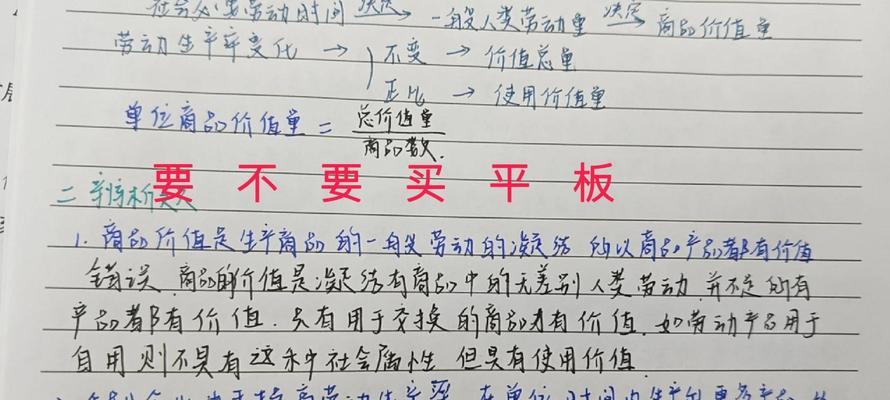 社会必要劳动时间 决定→ 一般人类劳动量 决定→ 商品价值量
劳动生产率变化 → 不变 → 价值总量
正比 → 使用价值量
单位商品价值量 = 总价值量
商品数
要不要买平板
二 辨析
1. 商品价值是生产商品的一般劳动的凝结 所以商品产品都有价值
错误 商品的价值是凝结有商品中的无差别人类劳动 并不是所有
产品都有价值. 只有用于交换的商品才有价值. 如劳动产品用于
自用则不具有这种社会属性 但具有使用价值
提高劳动生产率 在单位时间内生产